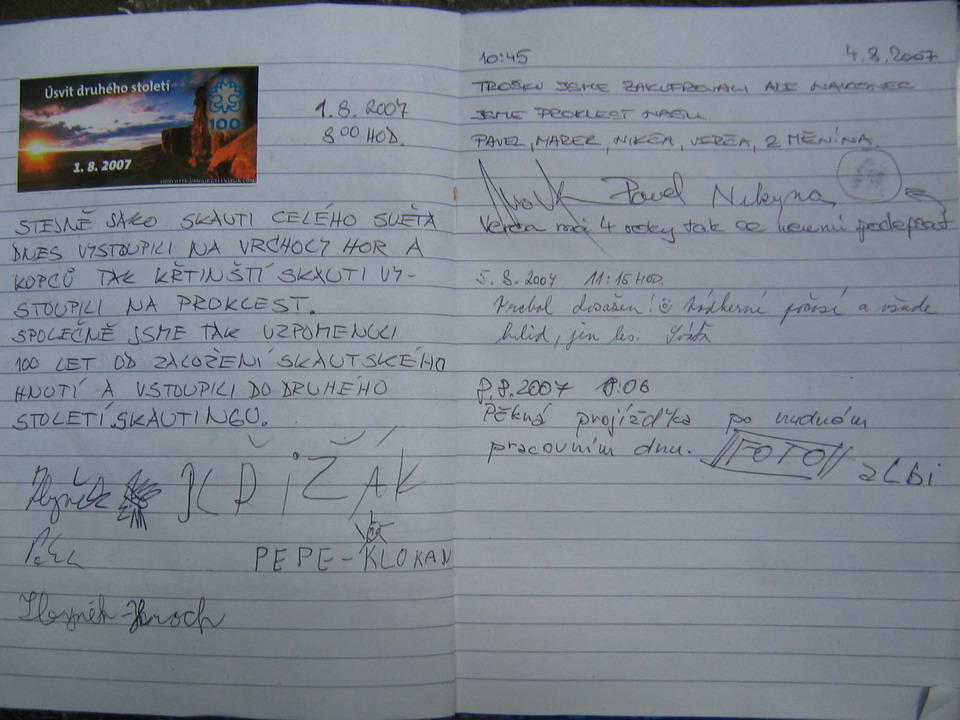 Úsvit druhého století
100
1. 8. 2007
1.8.2007
8 00 HOD.
STEJNĚ JAKO SKAUTI CELÉHO SVĚTA
DNES VYSTOUPILI NA VRCHOLY HOR A
KOPCŮ TAK KŘTINŠTÍ SKAUTI VY-
STOUPILI NA PROKLEST.
SPOLEČNĚ JSME TAK VZPOMENULI
100 LET OD ZALOŽENÍ SKAUTSKÉHO
HNUTÍ A VSTOUPILI DO DRUHÉHO
STOLETÍ SKAUTINGU.
PEPE-KLOKAN
Zbyněk-Hroch
10:45 4.8.2007
TROŠKU JSME ZAKUFROVALI ALE NAKONEC
JSME PROKLEST NAŠLI.
PAVEL, MAREK, NIKČA, VERČA, Z MĚNÍNA.
Pavel Nikyna
Verča má 4 roky tak se neumí podepsat
5.8.2007 11:15 HOD.
Vrchol dosažen! Nádherné počasí a všude
klid, jen les.
8.8.2007 18:06
Pěkná projížďka po nudném
pracovním dnu. FOTO